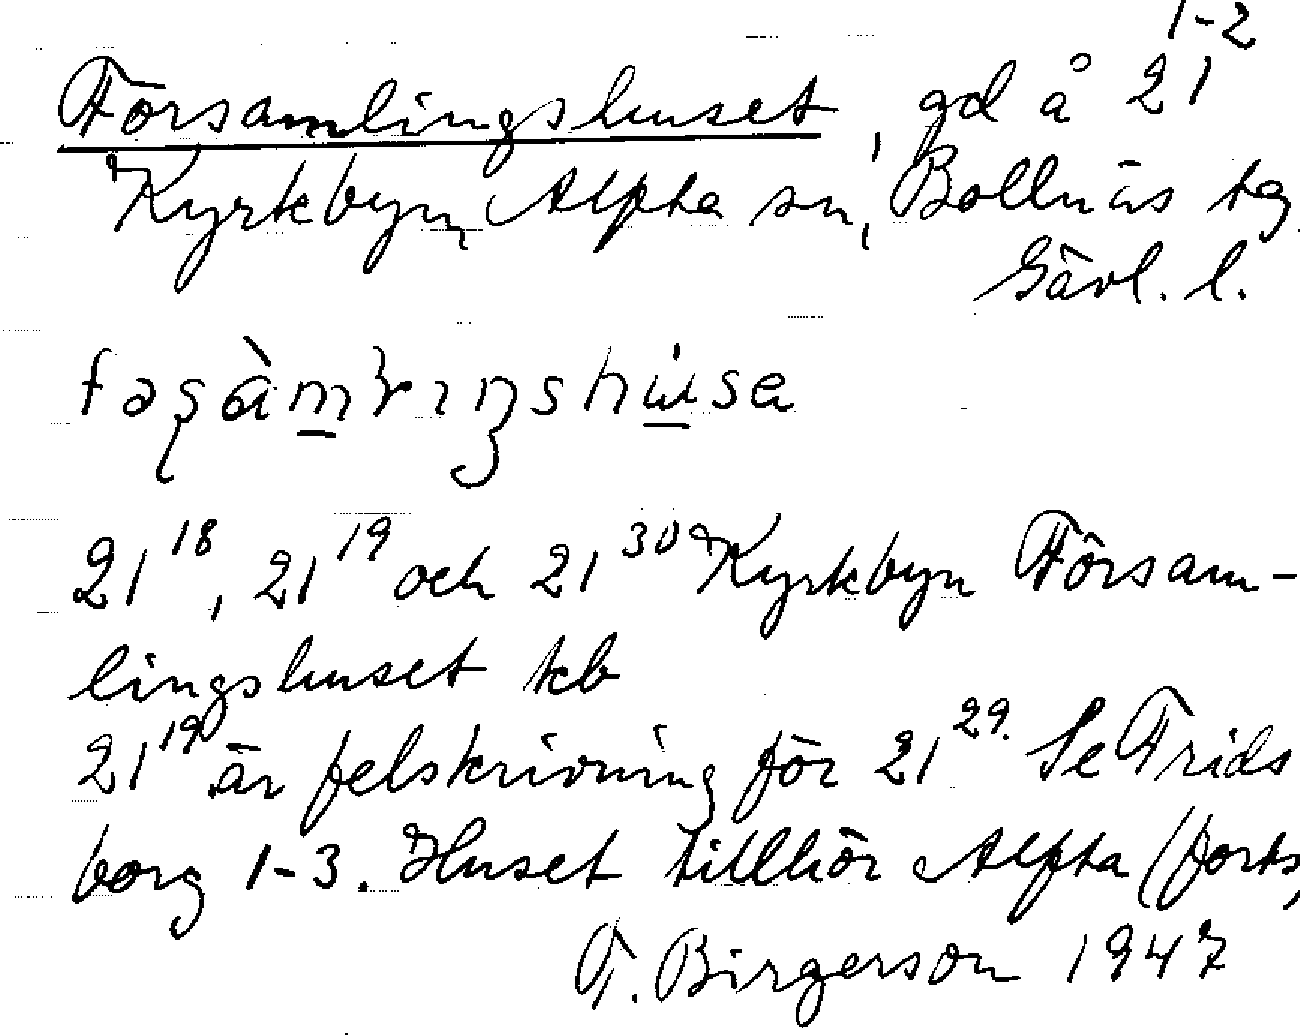 Församlingshuset, gd å 21¹⁻²
Kyrkbyn, Alfta sn, Bollnäs tg
Gävl. l.
21¹⁸, 21¹⁹ och 21³⁰ Kyrkbyn Försam-
lingshuset tkb
21¹⁹ är felskrivning för 21²⁹. Se Frids
borg 1-3. Huset tillhör Alfta (forts,
F. Birgerson 1947